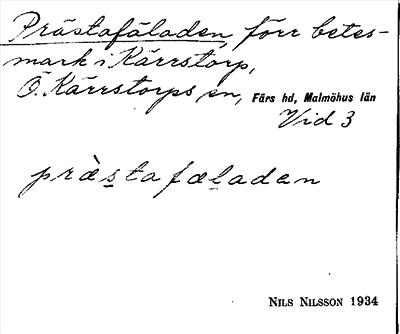 Prästafäladen, förr betes-
mark i Kärrstorp,
Ö. Kärrstorps sn, Färs hd, Malmöhus län
Vid 3
prästafæladen
NILS NILSSON 1934